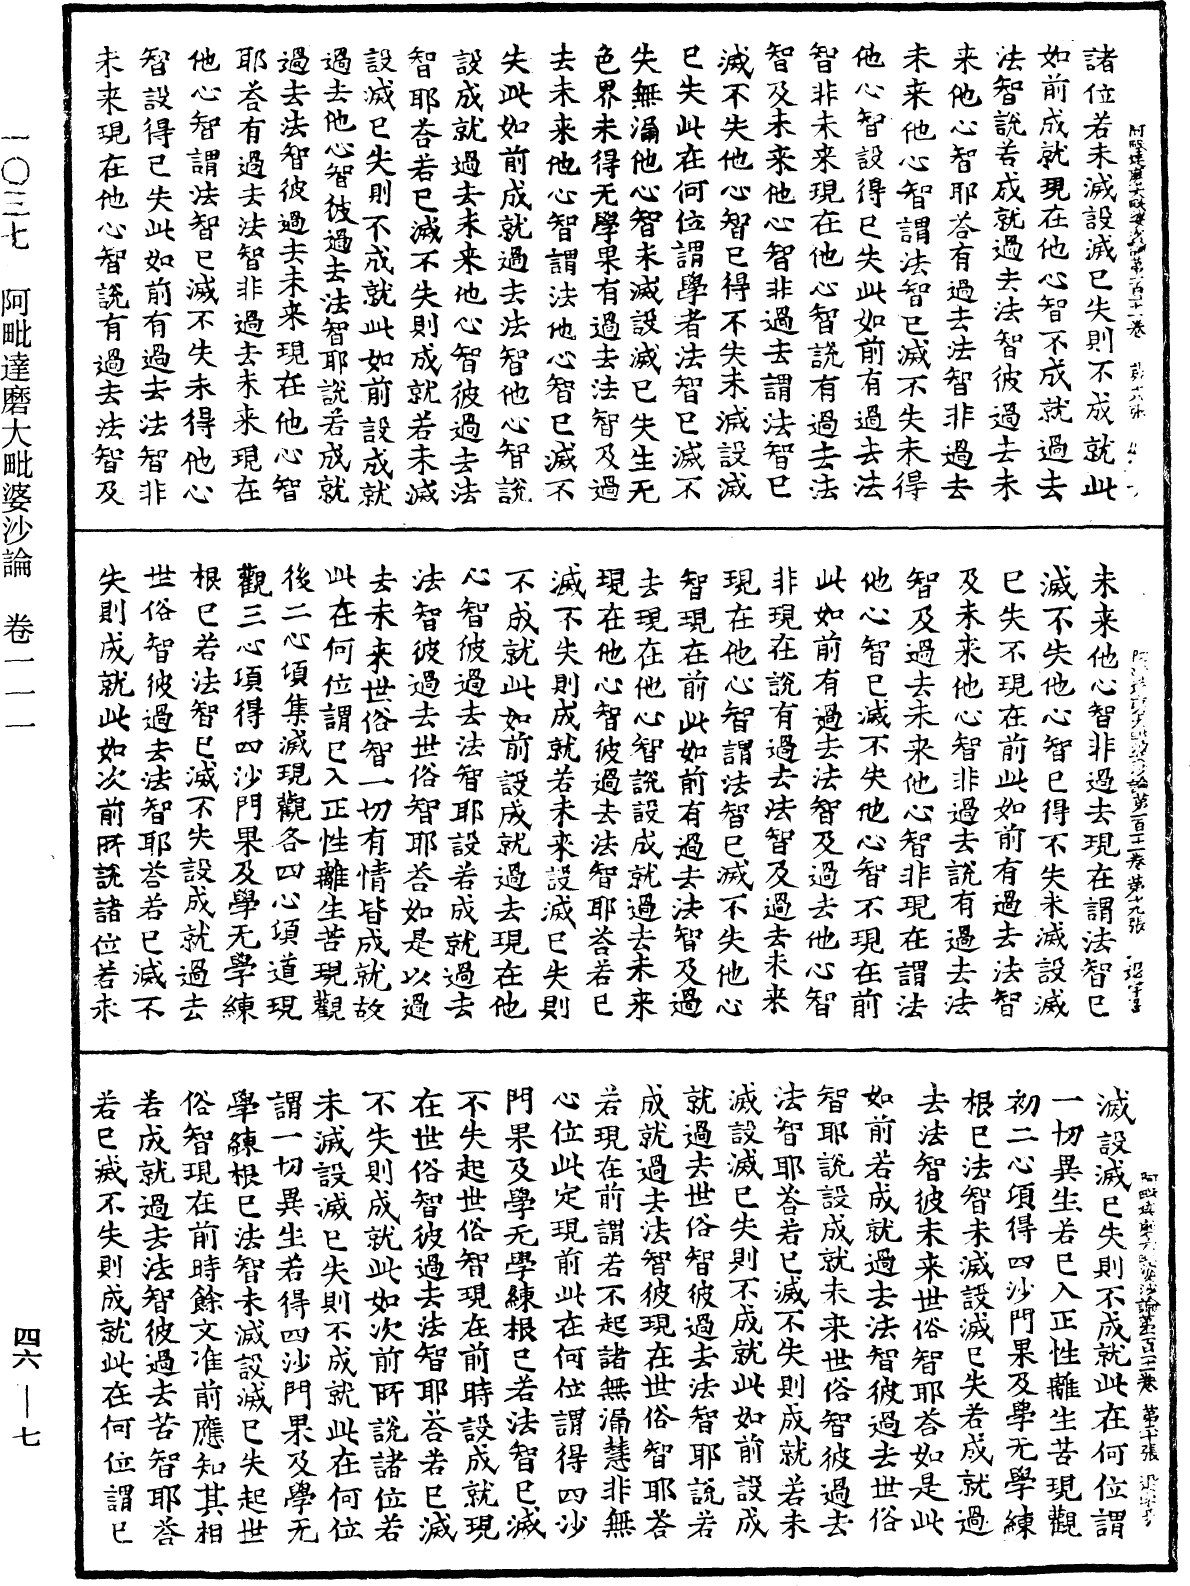 諸位若未滅設滅已失則不成就此
如前成就現在他心智不成就過去
法智說若成就過去法智彼過去未
来他心智耶荅有過去法智非過去
未来他心智謂法智已滅不失未得
他心智設得已失此如前有過去法
智非未来現在他心智說有過去法
智及未来他心智非過去謂法智已
滅不失他心智已得不失未滅設滅
已失此在何位謂學者法智已滅不
失無漏他心智未滅設滅已失生无
色界未得无學果有過去法智及過
去未来他心智謂法他心智已滅不
失此如前成就過去法智他心智說
設成就過去未来他心智彼過去法
智耶荅若已滅不失則成就若未滅
設滅已失則不成就此如前設成就
過去他心智彼過去法智耶說若成就
過去法智彼過去未来現在他心智
耶荅有過去法智非過去未来現在
他心智謂法智已滅不失未得他心
智設得已失此如前有過去法智非
未来現在他心智說有過去法智及
未来他心智非過去現在謂法智已
滅不失他心智已得不失未滅設滅
已失不現在前此如前有過去法智
及未来他心智非過去說有過去法
智及過去未来他心智非現在謂法
他心智已滅不失他心智不現在前
此如前有過去法智及過去他心智
非現在說有過去法智及過去未来
現在他心智謂法智已滅不失他心
智現在前此如前有過去法智及過
去現在他心智說設成就過去未来
現在他心智彼過去法智耶荅若已
滅不失則成就若未来設滅已失則
不成就此如前設成就過去現在他
心智彼過去法智耶設若成就過去
法智彼過去世俗智耶荅如是以過
去未来世俗智一切有情皆成就故
此在何位謂已入正性離生苦現觀
後二心項集滅現觀各四心項道現
觀三心項得四沙門果及學无學練
根已若法智已滅不失設成就過去
世俗智彼過去法智耶荅若已滅不
失則成就此如次前所說諸位若未
滅設滅已失則不成就此在何位謂
一切異生若已入正性離生苦現觀
初二心項得四沙門果及學无學練
根已法智未滅設滅已失若成就過
去法智彼未来世俗智耶荅如是此
如前若成就過去法智彼過去世俗
智耶說設成就未来世俗智彼過去
法智耶荅若已滅不失則成就若未
滅設滅已失則不成就此如前設成
就過去世俗智彼過去法智耶說若
成就過去法智彼現在世俗智耶荅
若現在前謂若不起諸無漏慧非無
心位此定現前此在何位謂得四沙
門果及學无學練根已若法智已滅
不失起世俗智現在前時設成就現
在世俗智彼過去法智耶荅若已滅
不失則成就此如次前所說諸位若
未滅設滅已失則不成就此在何位
謂一切異生若得四沙門果及學无
學練根已法智未滅設滅已失起世
俗智現在前時餘文准前應知其相
若成就過去法智彼過去苦智耶荅
若已滅不失則成就此在何位謂已
一〇三七　阿毗達磨大毗婆沙論　卷一一一
四六—七